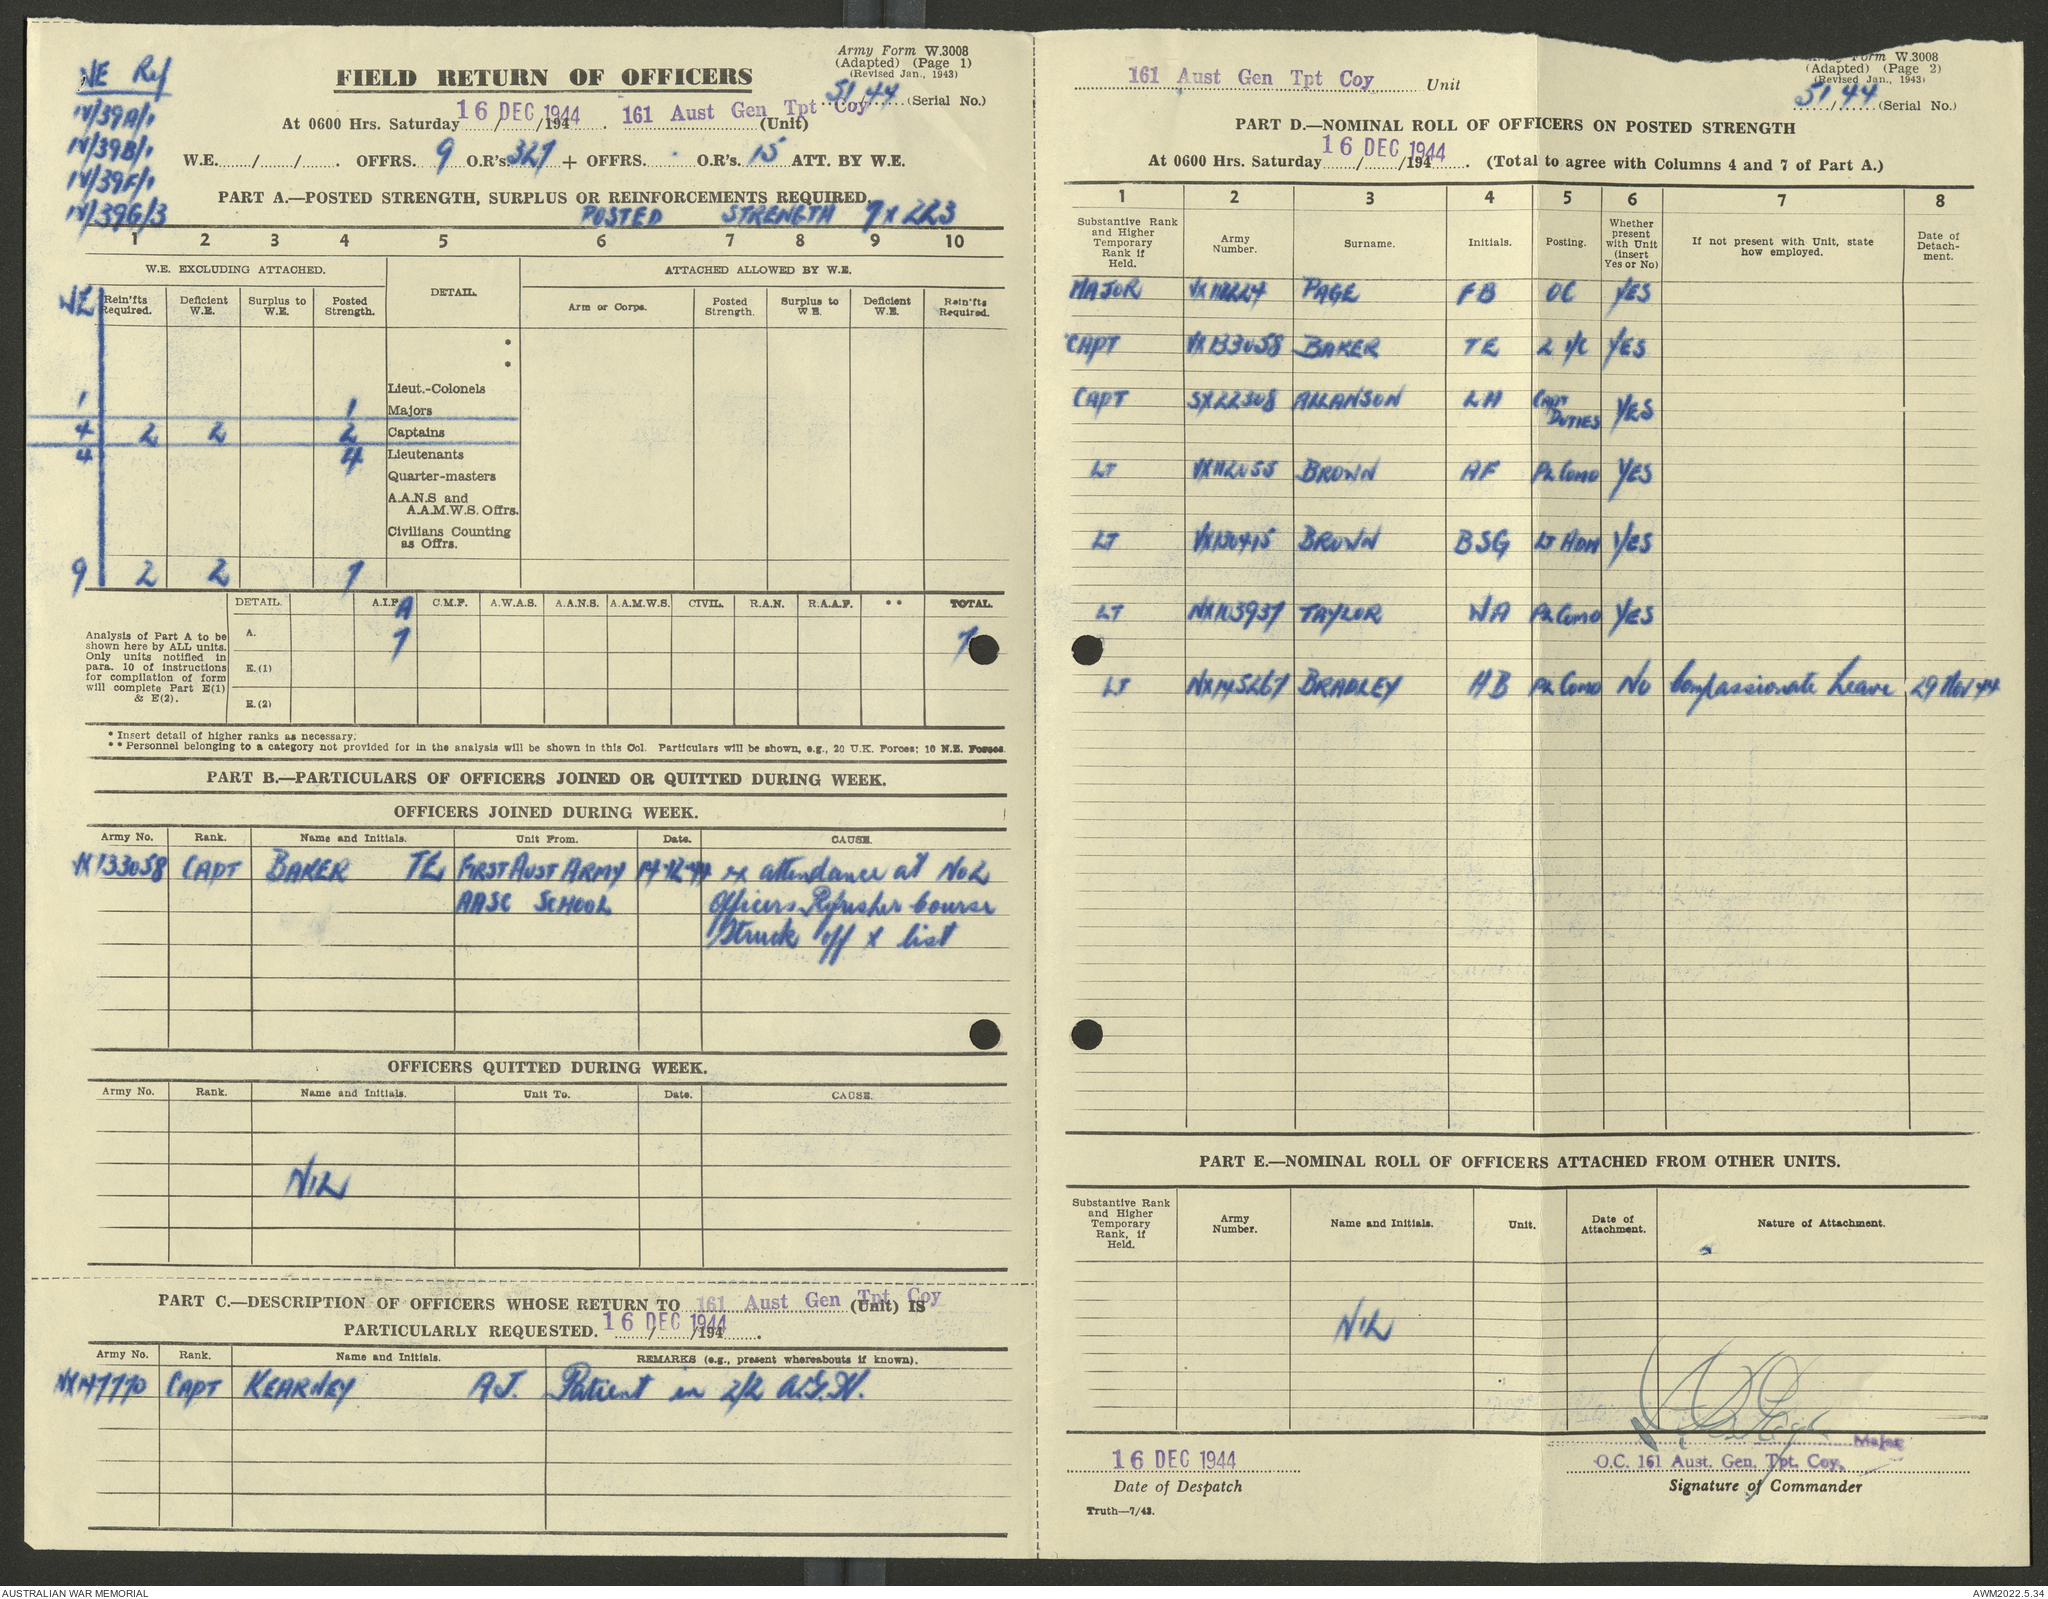 WE Ref
IV/39A/1
IV/39B/1
IV/39F/1
IV/39G/3
Army Form W.3008
(Adapted) (Page 1)
(Revised Jan., 1943)
FIELD RETURN OF OFFICERS
51/44 (Serial No.)
At 0600 Hrs. Saturday 16 DEC 1944 /194 . 161 Aust Gen Tpt Coy (Unit)
W.E. / / . OFFRS. 9 O.R's. 327 + OFFRS. O.R's. 15 ATT. BY W.E.
PART A.—POSTED STRENGTH, SURPLUS OR REINFORCEMENTS REQUIRED.
POSTED STRENGTH 7 X 223
1 2 3 4 5 6 7 8 9 10
W.E. EXCLUDING ATTACHED. DETAIL. ATTACHED ALLOWED BY W.E.
WE Rein'fts Required. Deficient W.E. Surplus to W.E. Posted Strength. Arm or Corps. Posted Strength. Surplus to W.E. Deficient W.E. Rein'fts Required.
*
*
Lieut.-Colonels
1 1 Majors
4 2 2 2 Captains
4 4 Lieutenants
Quarter-masters
A.A.N.S and
A.A.M.W.S. Offrs.
Civilians Counting
as Offrs.
9 2 2 7
DETAIL. A.I.F. A C.M.F. A.W.A.S. A.A.N.S. A.A.M.W.S. CIVIL. R.A.N. R.A.A.F. ** TOTAL.
Analysis of Part A to be
shown here by ALL units.
Only units notified in
para. 10 of instructions
for compilation of form
will complete Part E(1)
& E(2).
A. 7 7
E.(1)
E.(2)
* Insert detail of higher ranks as necessary.
** Personnel belonging to a category not provided for in the analysis will be shown in this Col. Particulars will be shown, e.g., 20 U.K. Forces; 10 N.E. Forces.
PART B.—PARTICULARS OF OFFICERS JOINED OR QUITTED DURING WEEK.
OFFICERS JOINED DURING WEEK.
Army No. Rank. Name and Initials. Unit From. Date. CAUSE.
VX133058 CAPT BAKER TE FIRST AUST ARMY 14-12-44 ex attendance at No 2
AASC SCHOOL Officers Refresher Course
Struck off X list
OFFICERS QUITTED DURING WEEK.
Army No. Rank. Name and Initials. Unit To. Date. CAUSE.
NIL
PART C.—DESCRIPTION OF OFFICERS WHOSE RETURN TO 161 Aust Gen Tpt Coy (Unit) IS
PARTICULARLY REQUESTED. 16 DEC 1944 / /194 .
Army No. Rank. Name and Initials. REMARKS (e.g., present whereabouts if known).
NX147770 CAPT KEARNEY AJ. Patient in 2/2 A.G.H.
Army Form W.3008
(Adapted) (Page 2)
(Revised Jan., 1943)
161 Aust Gen Tpt Coy Unit
51/44 (Serial No.)
PART D.—NOMINAL ROLL OF OFFICERS ON POSTED STRENGTH
At 0600 Hrs. Saturday 16 DEC 1944 / /194 . (Total to agree with Columns 4 and 7 of Part A.)
1 2 3 4 5 6 7 8
Substantive Rank and Higher Temporary Rank if Held. Army Number. Surname. Initials. Posting. Whether present with Unit (insert Yes or No) If not present with Unit, state how employed. Date of Detach-ment.
MAJOR PAGE FB OC YES
CAPT VX133058 BAKER TE 2 i/c YES
CAPT SX22308 ALLANSON LH CAPT DUTIES YES
LT VX112055 BROWN AF PL COMD YES
LT VX130415 BROWN BSG LT ADM YES
LT NX103937 TAYLOR WA PL COMD YES
LT NX145267 BRADLEY HB PL COMD NO Compassionate Leave 29 Nov 44
PART E.—NOMINAL ROLL OF OFFICERS ATTACHED FROM OTHER UNITS.
Substantive Rank and Higher Temporary Rank, if Held. Army Number. Name and Initials. Unit. Date of Attachment. Nature of Attachment.
NIL
16 DEC 1944
Date of Despatch
Truth—7/43.
Major
O.C. 161 Aust. Gen. Tpt. Coy.
Signature of Commander
AUSTRALIAN WAR MEMORIAL
AWM2022.5.34